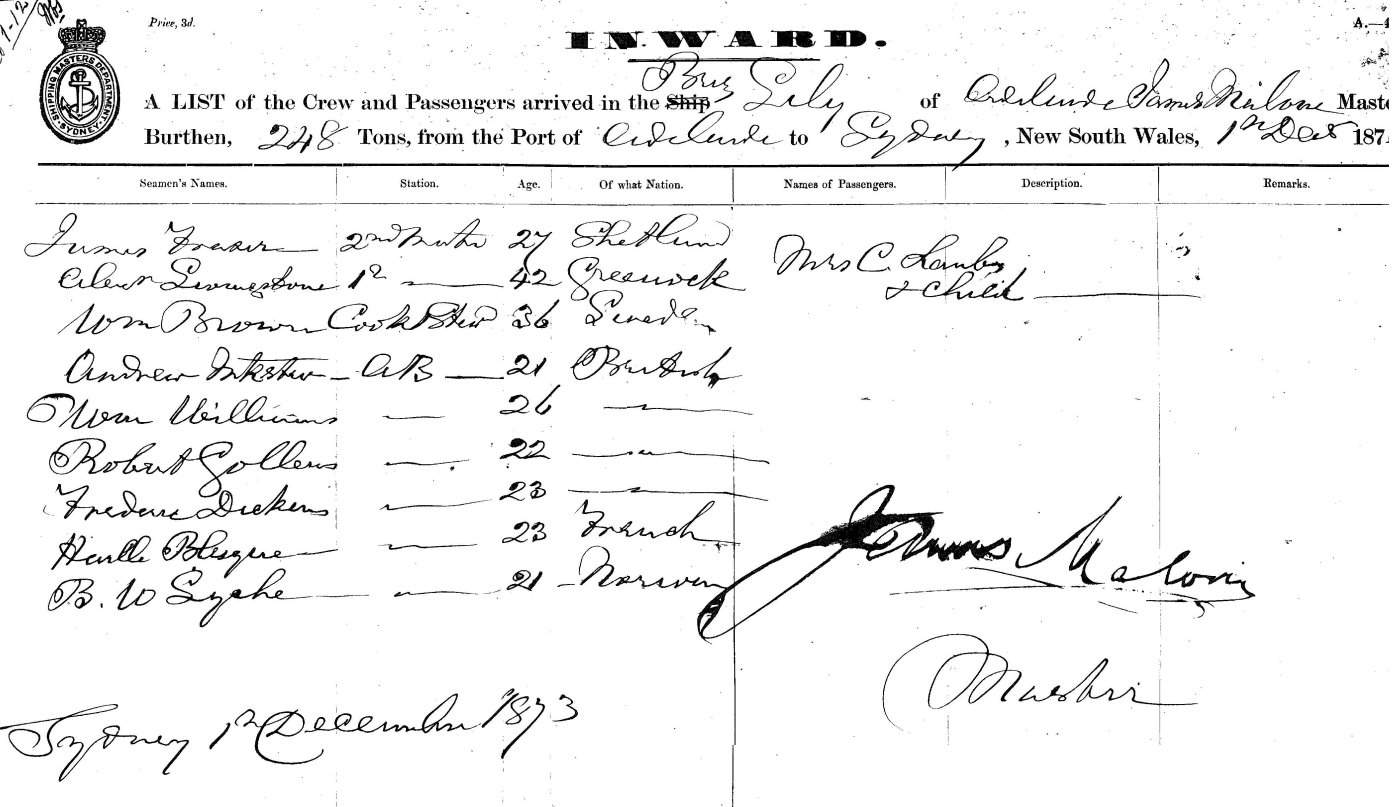 Price, 3d.
A.—4
SHIPPING MASTERS DEPARTMENT SYDNEY
INWARD.
A LIST of the Crew and Passengers arrived in the Ship Brig Lily of Adelaide James Malone Maste
Burthen, 248 Tons, from the Port of Adelaide to Sydney, New South Wales, 1st Dec 187
Seamen's Names. Station. Age. Of what Nation. Names of Passengers. Description. Remarks.
James Fraser 2nd Mate 27 Shetland
Mrs C. Lamb
Livingstone 1st — 42 Greenock
& Child —
Wm Brown Cook & Stew 36 Sweden
Andrew Inkster — AB — 21 British
Wm Williams — 26 —
Robert Gollens — 22 —
Frederic Dickens — 23 —
Blesque — 23 French
B. W — 21 — Norway
James Malone
Master
Sydney 1st December 1873